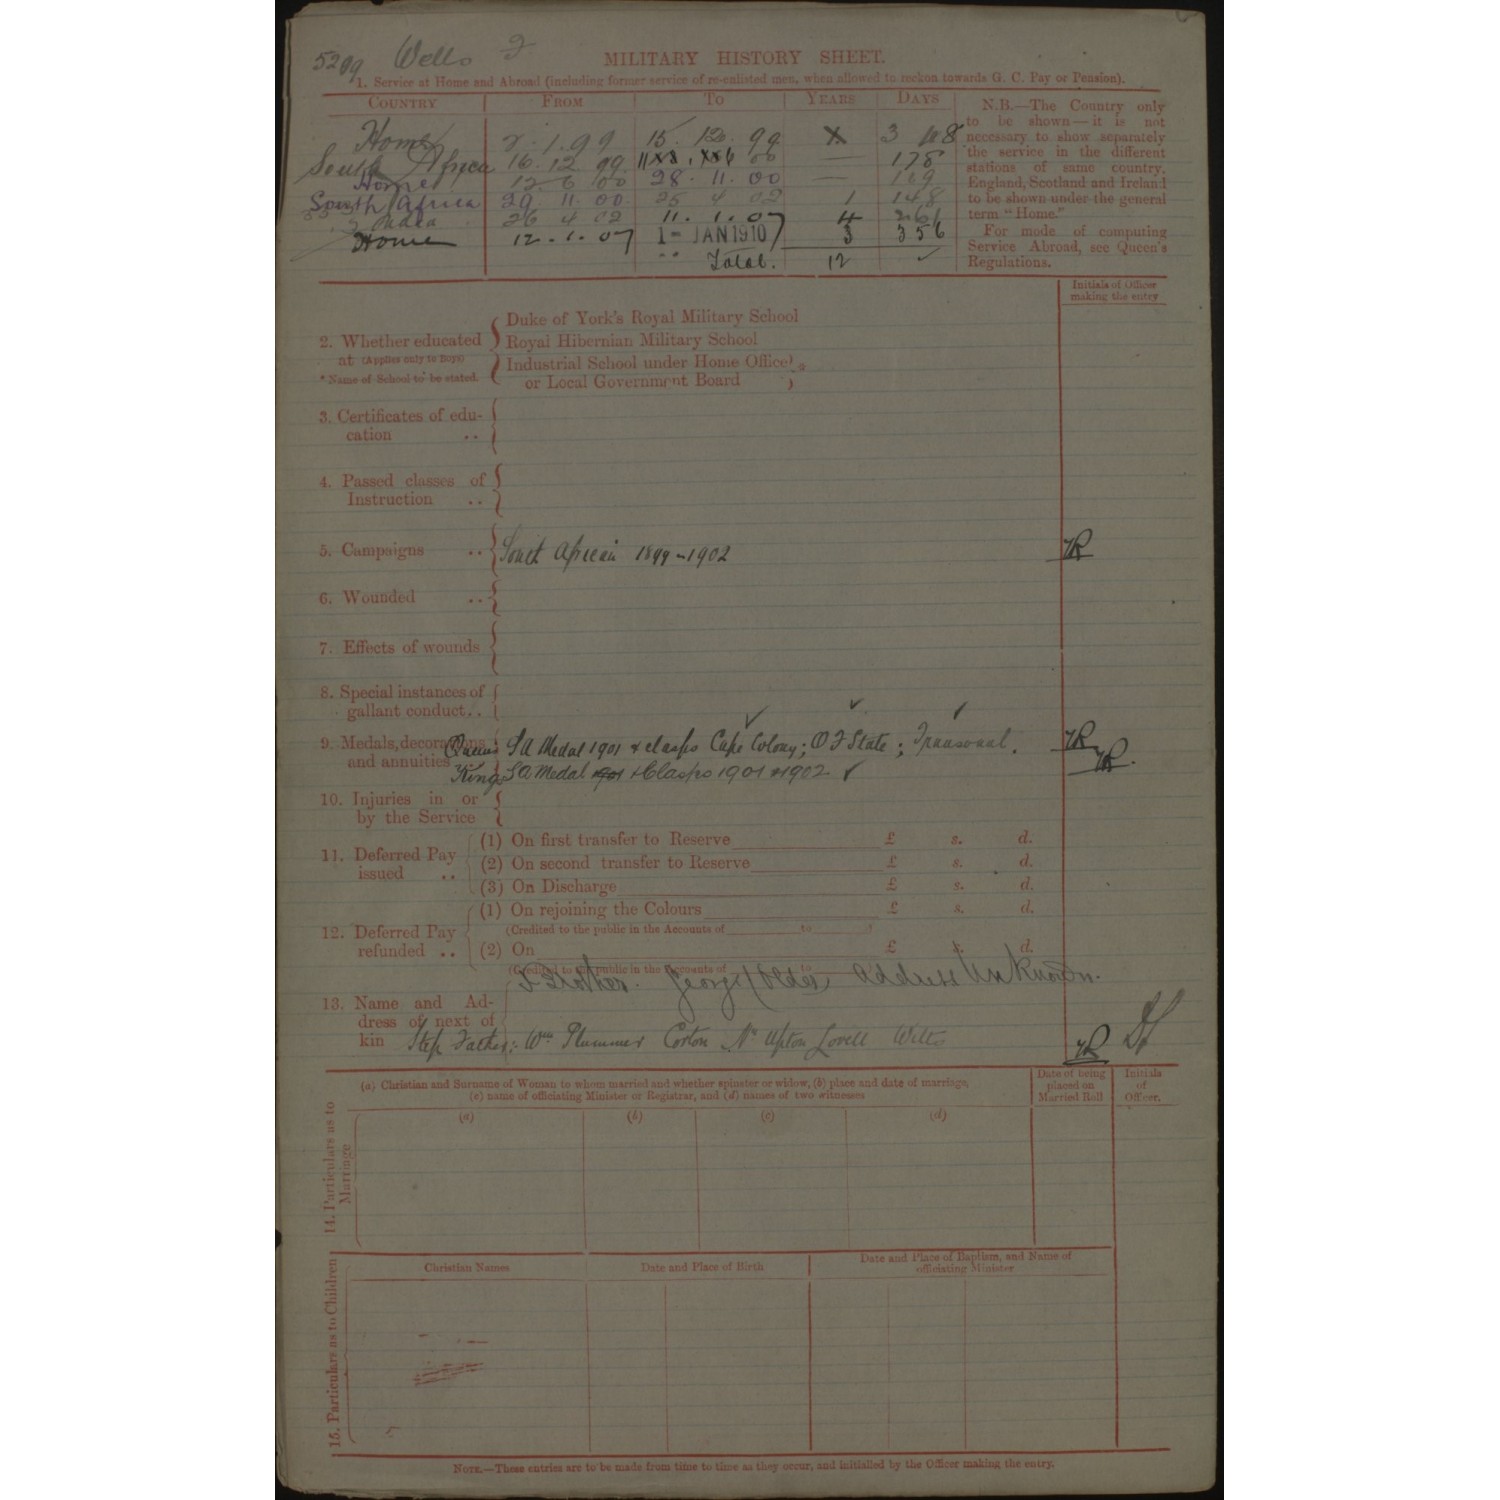 5299 Wells F
MILITARY HISTORY SHEET.
1. Service at Home and Abroad (including former service of re-enlisted men, when allowed to reckon towards G. C. Pay or Pension).
COUNTRY FROM TO YEARS DAYS
Home 2. 1. 99 15. 12. 99
South Africa 16. 12. 99 11 6 00 — 178
Home 12 6 00 28. 11. 00 — 169
South Africa 29. 11. 00 25 4 02 1 148
India 26 4 02 11. 1. 07 4 261
Home 12. 1. 07 1 - JAN 1910 3 356
Total. 12 ✓
N.B.—The Country only
to be shown—it is not
necessary to show separately
the service in the different
stations of same country.
England, Scotland and Ireland
to be shown under the general
term "Home."
For mode of computing
Service Abroad, see Queen's
Regulations.
Initials of Officer
making the entry
2. Whether educated
at (Applies only to Boys)
* Name of School to be stated.
Duke of York's Royal Military School
Royal Hibernian Military School
Industrial School under Home Office
or Local Government Board
3. Certificates of edu-
cation ..
4. Passed classes of
Instruction ..
5. Campaigns .. South African 1899-1902
6. Wounded ..
7. Effects of wounds
8. Special instances of
gallant conduct..
9. Medals, decorations
and annuities
Queens SA Medal 1901 & clasps Cape Colony; O F State; Transvaal.
Kings SA Medal 1901 & Clasps 1901 & 1902 ✓
10. Injuries in or
by the Service
11. Deferred Pay
issued ..
(1) On first transfer to Reserve £ s. d.
(2) On second transfer to Reserve £ s. d.
(3) On Discharge £ s. d.
12. Deferred Pay
refunded ..
(1) On rejoining the Colours £ s. d.
(Credited to the public in the Accounts of to )
(2) On £ s. d.
(Credited to the public in the Accounts of to
Brother. George (Older) Address Unknown.
13. Name and Ad-
dress of next of
kin
Step Father: Wm Plummer Corton Nr Upton Lovell Wilts
14. Particulars as to
Marriage
(a) Christian and Surname of Woman to whom married and whether spinster or widow, (b) place and date of marriage,
(c) name of officiating Minister or Registrar, and (d) names of two witnesses
Date of being
placed on
Married Roll
Initials
of
Officer.
(a) (b) (c) (d)
15. Particulars as to Children
Christian Names Date and Place of Birth
Date and Place of Baptism, and Name of
officiating Minister
NOTE.—These entries are to be made from time to time as they occur, and initialled by the Officer making the entry.